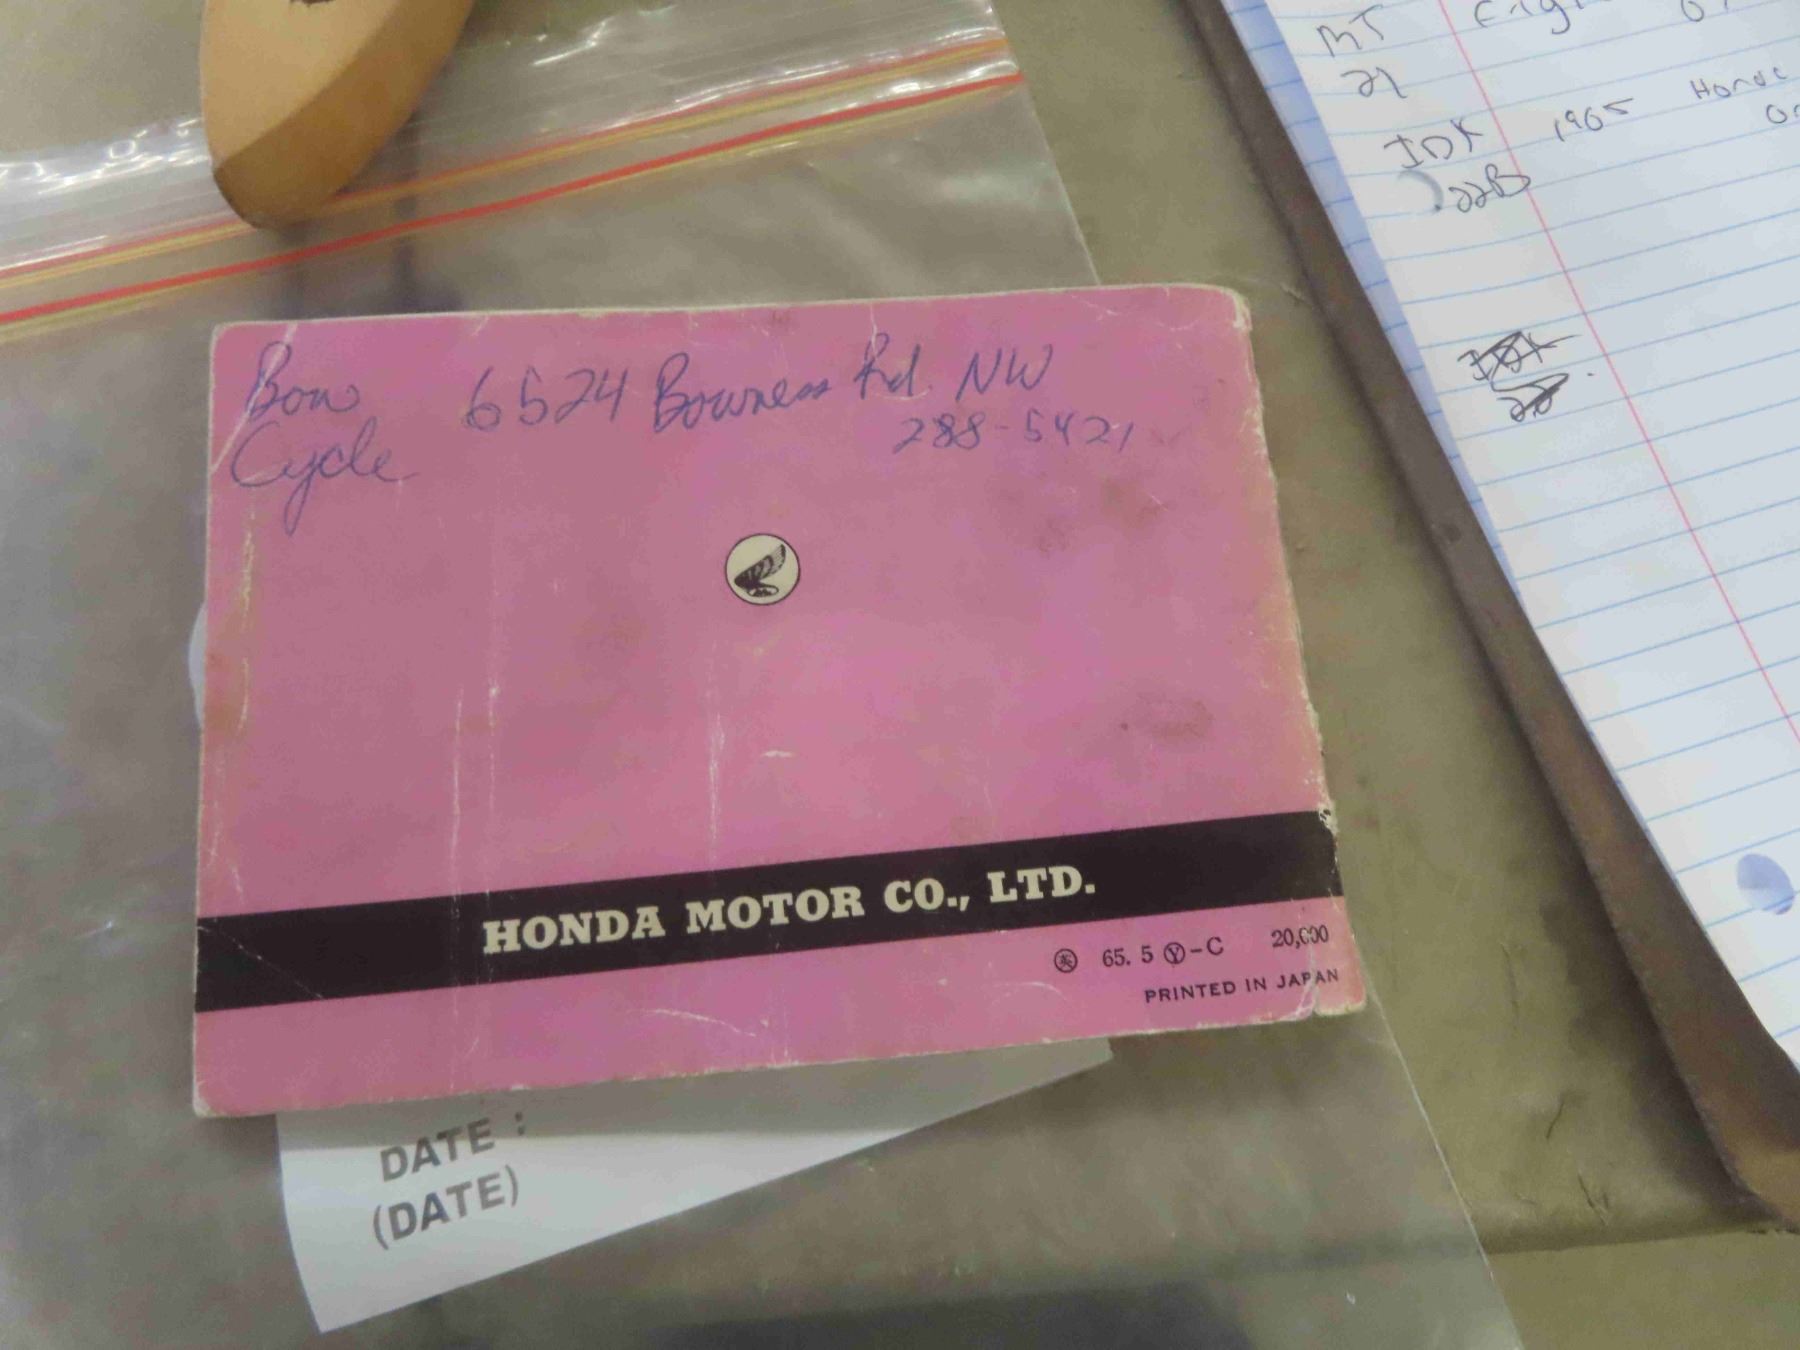 Bow
Cycle
6524 Bowness Rd. NW
288-5421
HONDA MOTOR CO., LTD.
英 65. 5 Ⓨ-C 20,000
PRINTED IN JAPAN
DATE :
(DATE)
MT
21
IDK 1965 Honda
22B